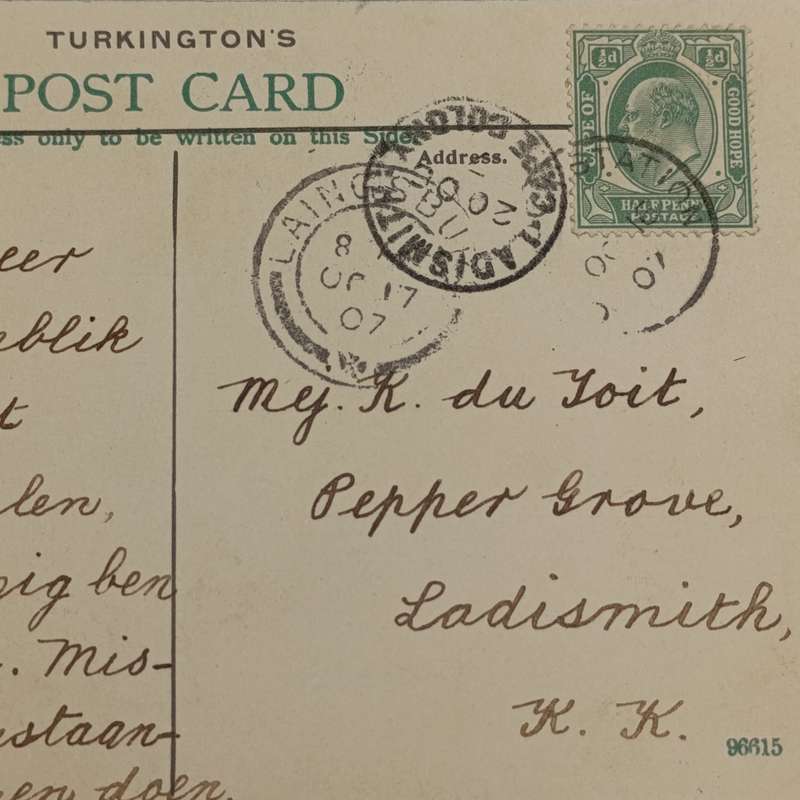 TURKINGTON'S
POST CARD
ess only to be written on this Side.
Address.
½d ½d
CAPE OF GOOD HOPE
HALFPENNY
POSTAGE
CAPE COLONY
LADISMITH
20 07
LAING
8
OC 17
07
STATION
OC
07
eer
eblik
t
len,
ig ben
. Mis-
staan-
en doen.
Mej. K. du Toit,
Pepper Grove,
Ladismith,
K. K.
96615